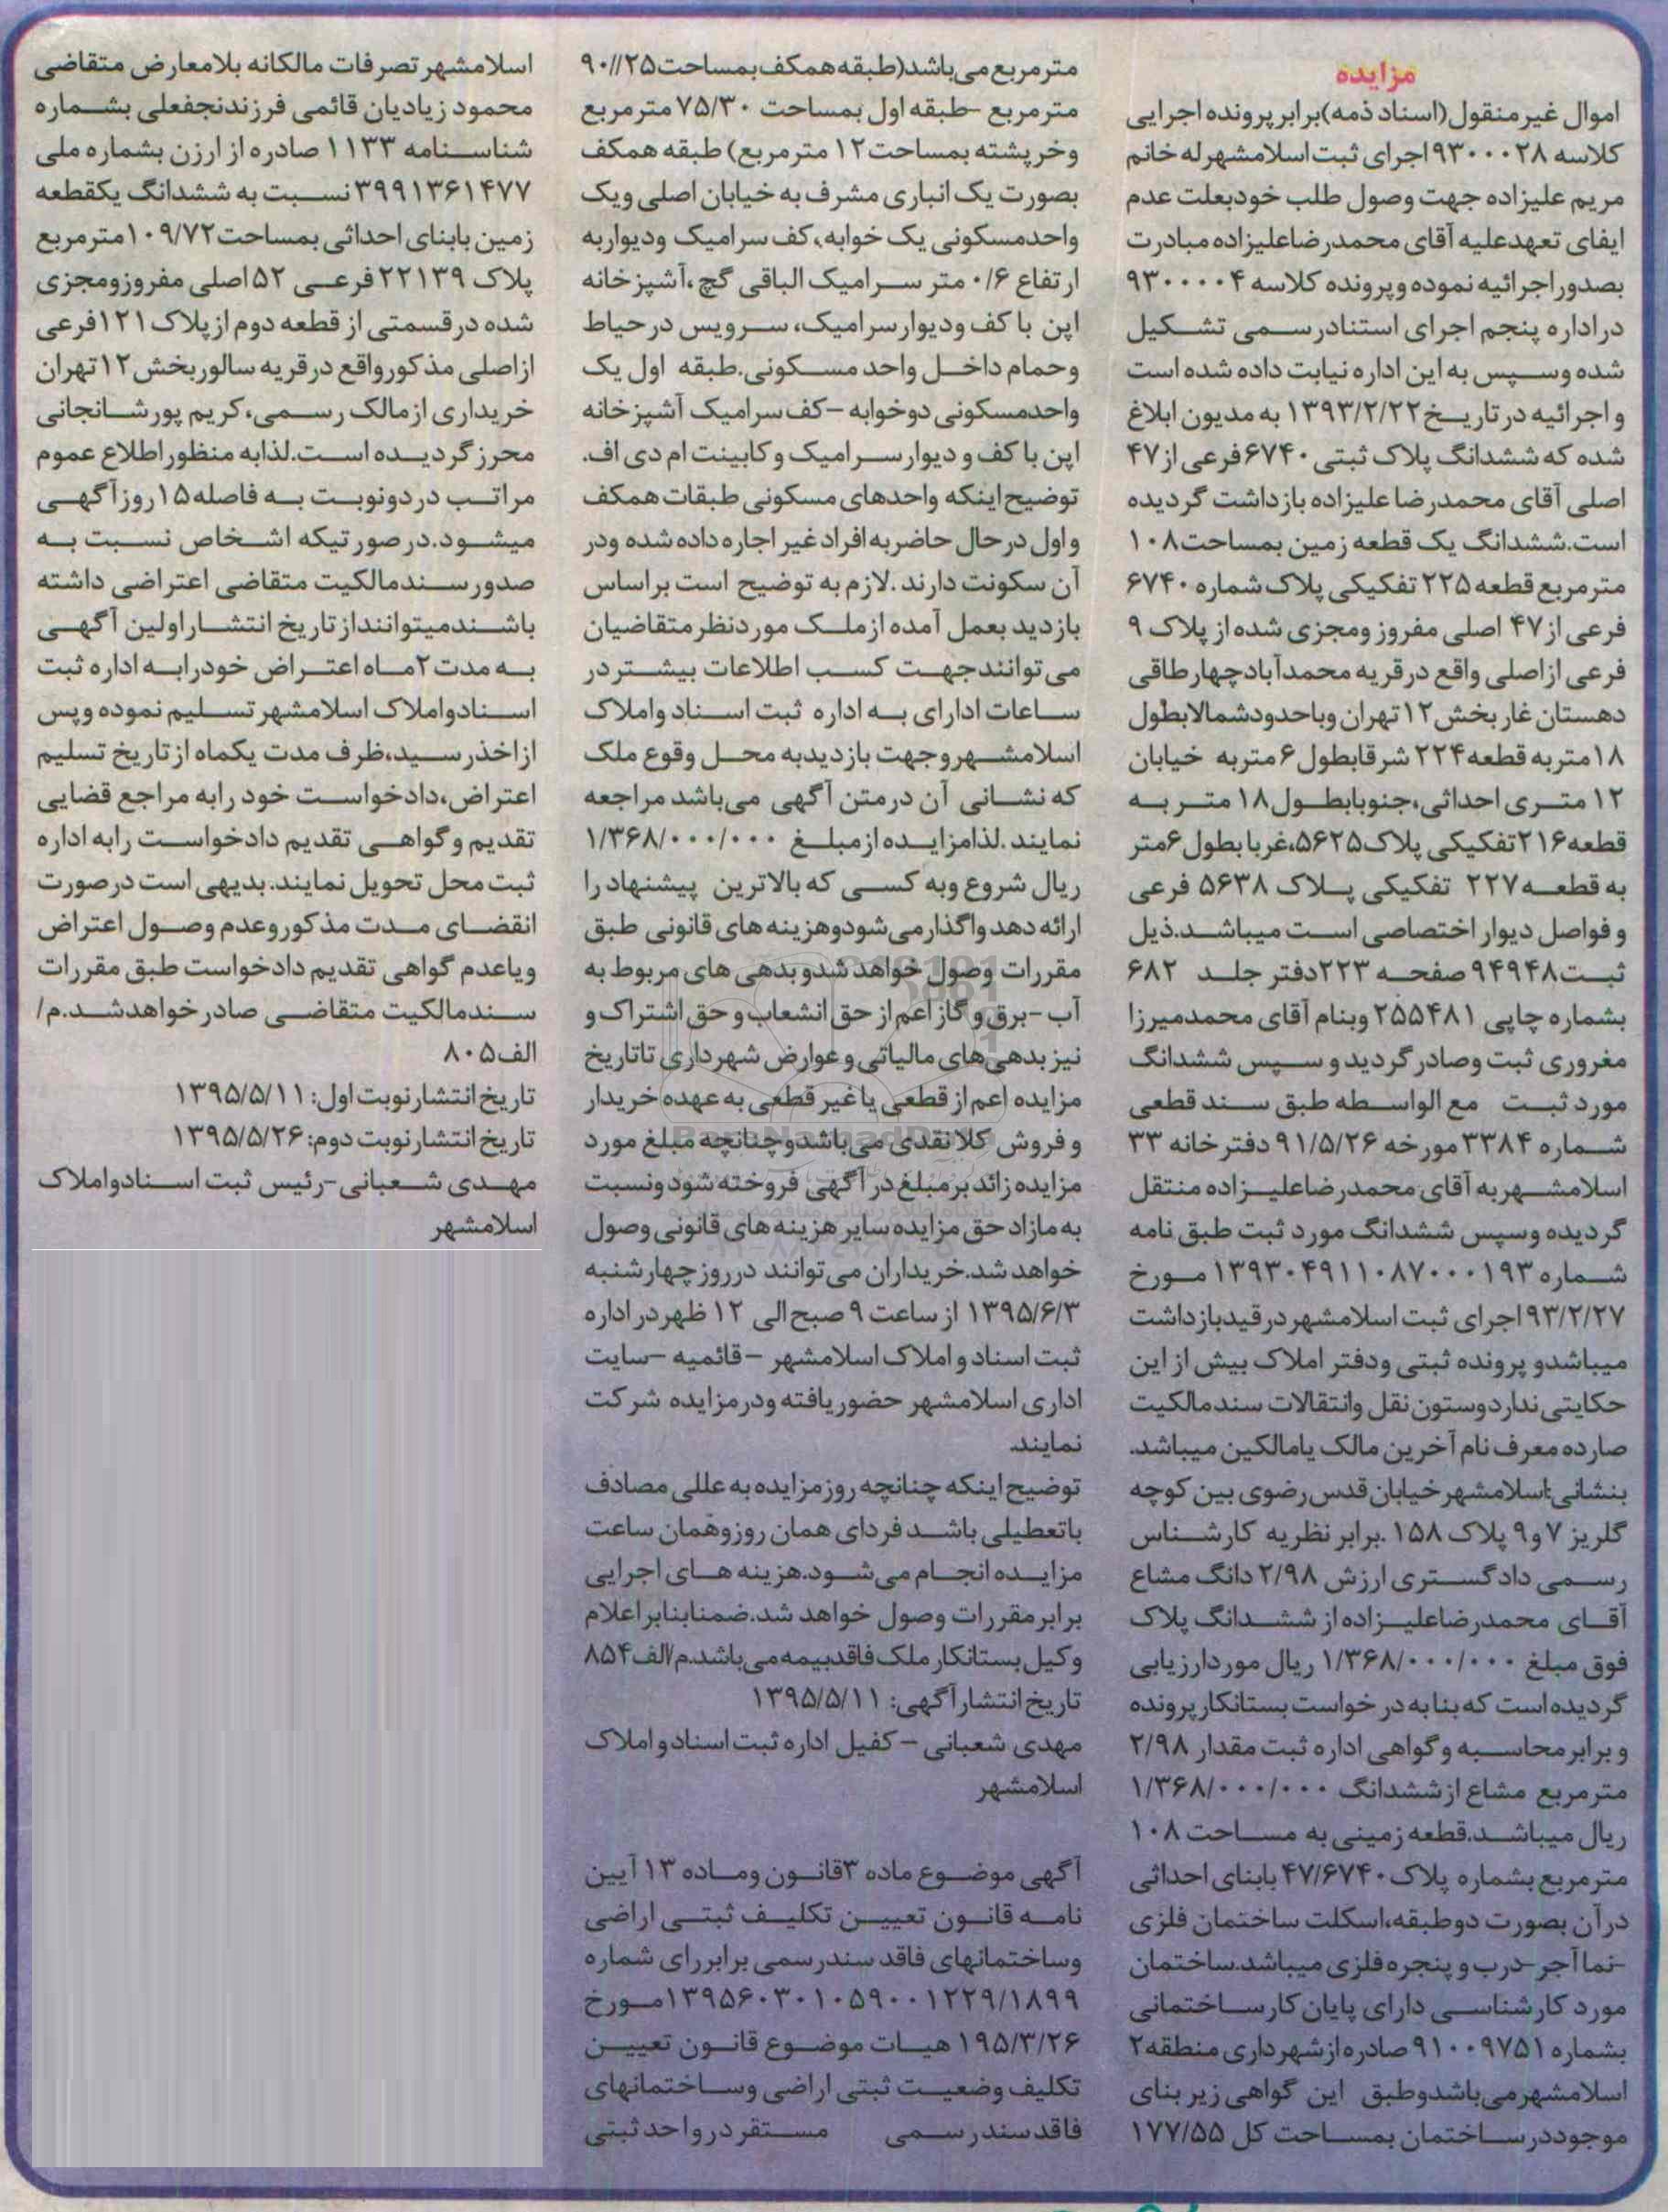 مزایده
اموال غیرمنقول(اسناد ذمه)برابر پرونده اجرایی
کلاسه ۹۳۰۰۰۲۸ اجرای ثبت اسلامشهر له خانم
مریم علیزاده جهت وصول طلب خودبعلت عدم
ایفای تعهدعلیه آقای محمدرضاعلیزاده مبادرت
بصدور اجرائیه نموده وپرونده کلاسه ۹۳۰۰۰۰۴
دراداره پنجم اجرای استنادرسمی تشکیل
شده وسپس به این اداره نیابت داده شده است
و اجرائیه در تاریخ۱۳۹۳/۲/۲۲ به مدیون ابلاغ
شده که ششدانگ پلاک ثبتی ۶۷۴۰فرعی از۴۷
اصلی آقای محمدرضا علیزاده بازداشت گردیده
است.ششدانگ یک قطعه زمین بمساحت۱۰۸
مترمربع قطعه ۲۲۵ تفکیکی پلاک شماره ۶۷۴۰
فرعی از۴۷ اصلی مفروز ومجزی شده از پلاک ۹
فرعی ازاصلی واقع درقریه محمدآبادچهارطاقی
دهستان غاربخش۱۲تهران وباحدودشمالابطول
۱۸متربه قطعه۲۲۴ شرقابطول۶متربه خیابان
۱۲ متری احداثی،جنوبابطول۱۸ متربه
قطعه۲۱۶تفکیکی پلاک۵۶۲۵،غربابطول۶متر
به قطعه۲۲۷ تفکیکی پلاک ۵۶۳۸ فرعی
و فواصل دیوار اختصاصی است میباشد.ذیل
ثبت۹۴۹۴۸ صفحه ۲۲۳دفتر جلد ۶۸۲
بشماره چاپی ۲۵۵۴۸۱ وبنام آقای محمدمیرزا
مغروری ثبت وصادرگردید و سپس ششدانگ
مورد ثبت مع الواسطه طبق سند قطعی
شماره ۳۳۸۴ مورخه ۹۱/۵/۲۶ دفترخانه ۳۳
اسلامشهربه آقای محمدرضاعلیزاده منتقل
گردیده وسپس ششدانگ مورد ثبت طبق نامه
شماره ۱۳۹۳۰۴۹۱۱۰۸۷۰۰۰۱۹۳ مورخ
۹۳/۲/۲۷ اجرای ثبت اسلامشهر درقیدبازداشت
میباشدو پرونده ثبتی ودفتر املاک بیش از این
حکایتی ندارد وستون نقل وانتقالات سندمالکیت
صارده معرف نام آخرین مالک یامالکین میباشد.
بنشانی:اسلامشهر خیابان قدس رضوی بین کوچه
گلریز ۷و۹ پلاک ۱۵۸ .برابر نظریه کارشناس
رسمی دادگستری ارزش ۲/۹۸ دانگ مشاع
آقای محمدرضاعلیزاده از ششدانگ پلاک
فوق مبلغ ۱/۳۶۸/۰۰۰/۰۰۰ ریال موردارزیابی
گردیده است که بنابه درخواست بستانکار پرونده
و برابر محاسبه وگواهی اداره ثبت مقدار ۲/۹۸
مترمربع مشاع ازششدانگ ۱/۳۶۸/۰۰۰/۰۰۰
ریال میباشد.قطعه زمینی به مساحت ۱۰۸
مترمربع بشماره پلاک ۴۷/۶۷۴۰ بابنای احداثی
درآن بصورت دوطبقه،اسکلت ساختمان فلزی
-نماآجر-درب و پنجره فلزی میباشد.ساختمان
مورد کارشناسی دارای پایان کار ساختمانی
بشماره ۹۱۰۰۹۷۵۱ صادره ازشهرداری منطقه۲
اسلامشهرمی‌باشدوطبق این گواهی زیربنای
موجوددرساختمان بمساحت کل ۱۷۷/۵۵
مترمربع می‌باشد(طبقه همکف بمساحت۹۰//۲۵
مترمربع -طبقه اول بمساحت ۷۵/۳۰ مترمربع
وخرپشته بمساحت۱۲ مترمربع) طبقه همکف
بصورت یک انباری مشرف به خیابان اصلی ویک
واحدمسکونی یک خوابه،کف سرامیک ودیواربه
ارتفاع ۰/۶ متر سرامیک الباقی گچ ،آشپزخانه
اپن باکف ودیوارسرامیک، سرویس درحیاط
وحمام داخل واحد مسکونی.طبقه اول یک
واحدمسکونی دوخوابه -کف سرامیک آشپزخانه
اپن با کف و دیوار سرامیک و کابینت ام دی اف.
توضیح اینکه واحدهای مسکونی طبقات همکف
و اول درحال حاضر به افراد غیر اجاره داده شده ودر
آن سکونت دارند .لازم به توضیح است براساس
بازدید بعمل آمده ازملک موردنظر متقاضیان
می‌توانندجهت کسب اطلاعات بیشتردر
ساعات ادارای به اداره ثبت اسناد واملاک
اسلامشهروجهت بازدیدبه محل وقوع ملک
که نشانی آن درمتن آگهی می‌باشد مراجعه
نمایند .لذامزایده ازمبلغ ۱/۳۶۸/۰۰۰/۰۰۰
ریال شروع وبه کسی که بالاترین پیشنهاد را
ارائه دهد واگذارمی‌شودوهزینه های قانونی طبق
مقررات وصول خواهد شدو بدهی های مربوط به
آب -برق و گاز اعم از حق انشعاب و حق اشتراک و
نیز بدهی‌های مالیاتی وعوارض شهرداری تاتاریخ
مزایده اعم از قطعی یا غیر قطعی به عهده خریدار
و فروش کلانقدی می‌باشدوچنانچه مبلغ مورد
مزایده زائد برمبلغ درآگهی فروخته شود ونسبت
به مازاد حق مزایده سایر هزینه های قانونی وصول
خواهد شد.خریداران می‌توانند درروز چهارشنبه
۱۳۹۵/۶/۳ از ساعت ۹ صبح الی ۱۲ ظهر در اداره
ثبت اسناد و املاک اسلامشهر -قائمیه -سایت
اداری اسلامشهر حضوریافته ودرمزایده شرکت
نمایند.
توضیح اینکه چنانچه روزمزایده به عللی مصادف
باتعطیلی باشد فردای همان روزوهمان ساعت
مزایده انجام می‌شود.هزینه های اجرایی
برابر مقررات وصول خواهد شد.ضمنابنابر اعلام
وکیل بستانکار ملک فاقدبیمه می‌باشد.م/الف۸۵۴
تاریخ انتشار آگهی: ۱۳۹۵/۵/۱۱
مهدی شعبانی - کفیل اداره ثبت اسناد و املاک
اسلامشهر
آگهی موضوع ماده ۳قانون وماده ۱۳ آیین
نامه قانون تعیین تکلیف ثبتی اراضی
وساختمانهای فاقد سندرسمی برابررای شماره
۱۳۹۵۶۰۳۰۱۰۵۹۰۰۱۲۲۹/۱۸۹۹مورخ
۱۹۵/۳/۲۶ هیات موضوع قانون تعیین
تکلیف وضعیت ثبتی اراضی وساختمانهای
فاقد سندرسمی مستقر در واحد ثبتی
اسلامشهر تصرفات مالکانه بلامعارض متقاضی
محمود زیادیان قائمی فرزندنجفعلی بشماره
شناسنامه ۱۱۳۳ صادره از ارزن بشماره ملی
۳۹۹۱۳۶۱۴۷۷ نسبت به ششدانگ یکقطعه
زمین بابنای احداثی بمساحت۱۰۹/۷۲مترمربع
پلاک ۲۲۱۳۹ فرعی ۵۲اصلی مفروزومجزی
شده درقسمتی از قطعه دوم ازپلاک ۱۲۱فرعی
ازاصلی مذکورواقع درقریه سالوربخش۱۲تهران
خریداری ازمالک رسمی،کریم پورشانجانی
محرزگردیده است.لذابه منظور اطلاع عموم
مراتب در دونوبت به فاصله۱۵روزآگهی
میشود.درصورتیکه اشخاص نسبت به
صدورسندمالکیت متقاضی اعتراضی داشته
باشندمیتواننداز تاریخ انتشار اولین آگهی
به مدت۲ماه اعتراض خودرابه اداره ثبت
اسنادواملاک اسلامشهر تسلیم نموده وپس
ازاخذرسید،ظرف مدت یکماه ازتاریخ تسلیم
اعتراض،دادخواست خود رابه مراجع قضایی
تقدیم وگواهی تقدیم دادخواست رابه اداره
ثبت محل تحویل نمایند.بدیهی است درصورت
انقضای مدت مذکوروعدم وصول اعتراض
ویاعدم گواهی تقدیم دادخواست طبق مقررات
سندمالکیت متقاضی صادرخواهدشد.م/
الف۸۰۵
تاریخ انتشارنوبت اول: ۱۳۹۵/۵/۱۱
تاریخ انتشارنوبت دوم: ۱۳۹۵/۵/۲۶
مهدی شعبانی-رئیس ثبت اسنادواملاک
اسلامشهر